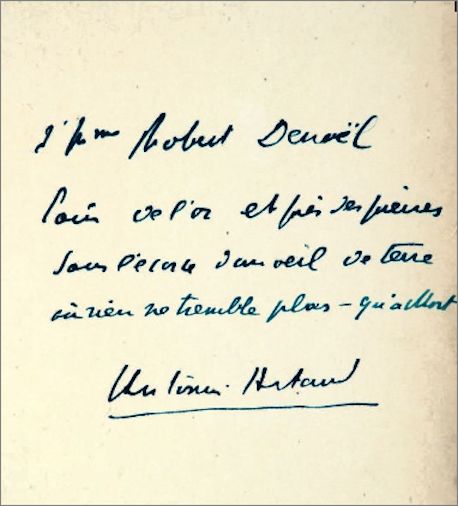 à Mme Robert Denoël
Loin de l'or et près des pierres
sous l'écorce d'un œil de terre
où rien ne tremble plus – qu'a Mort
Antonin Artaud